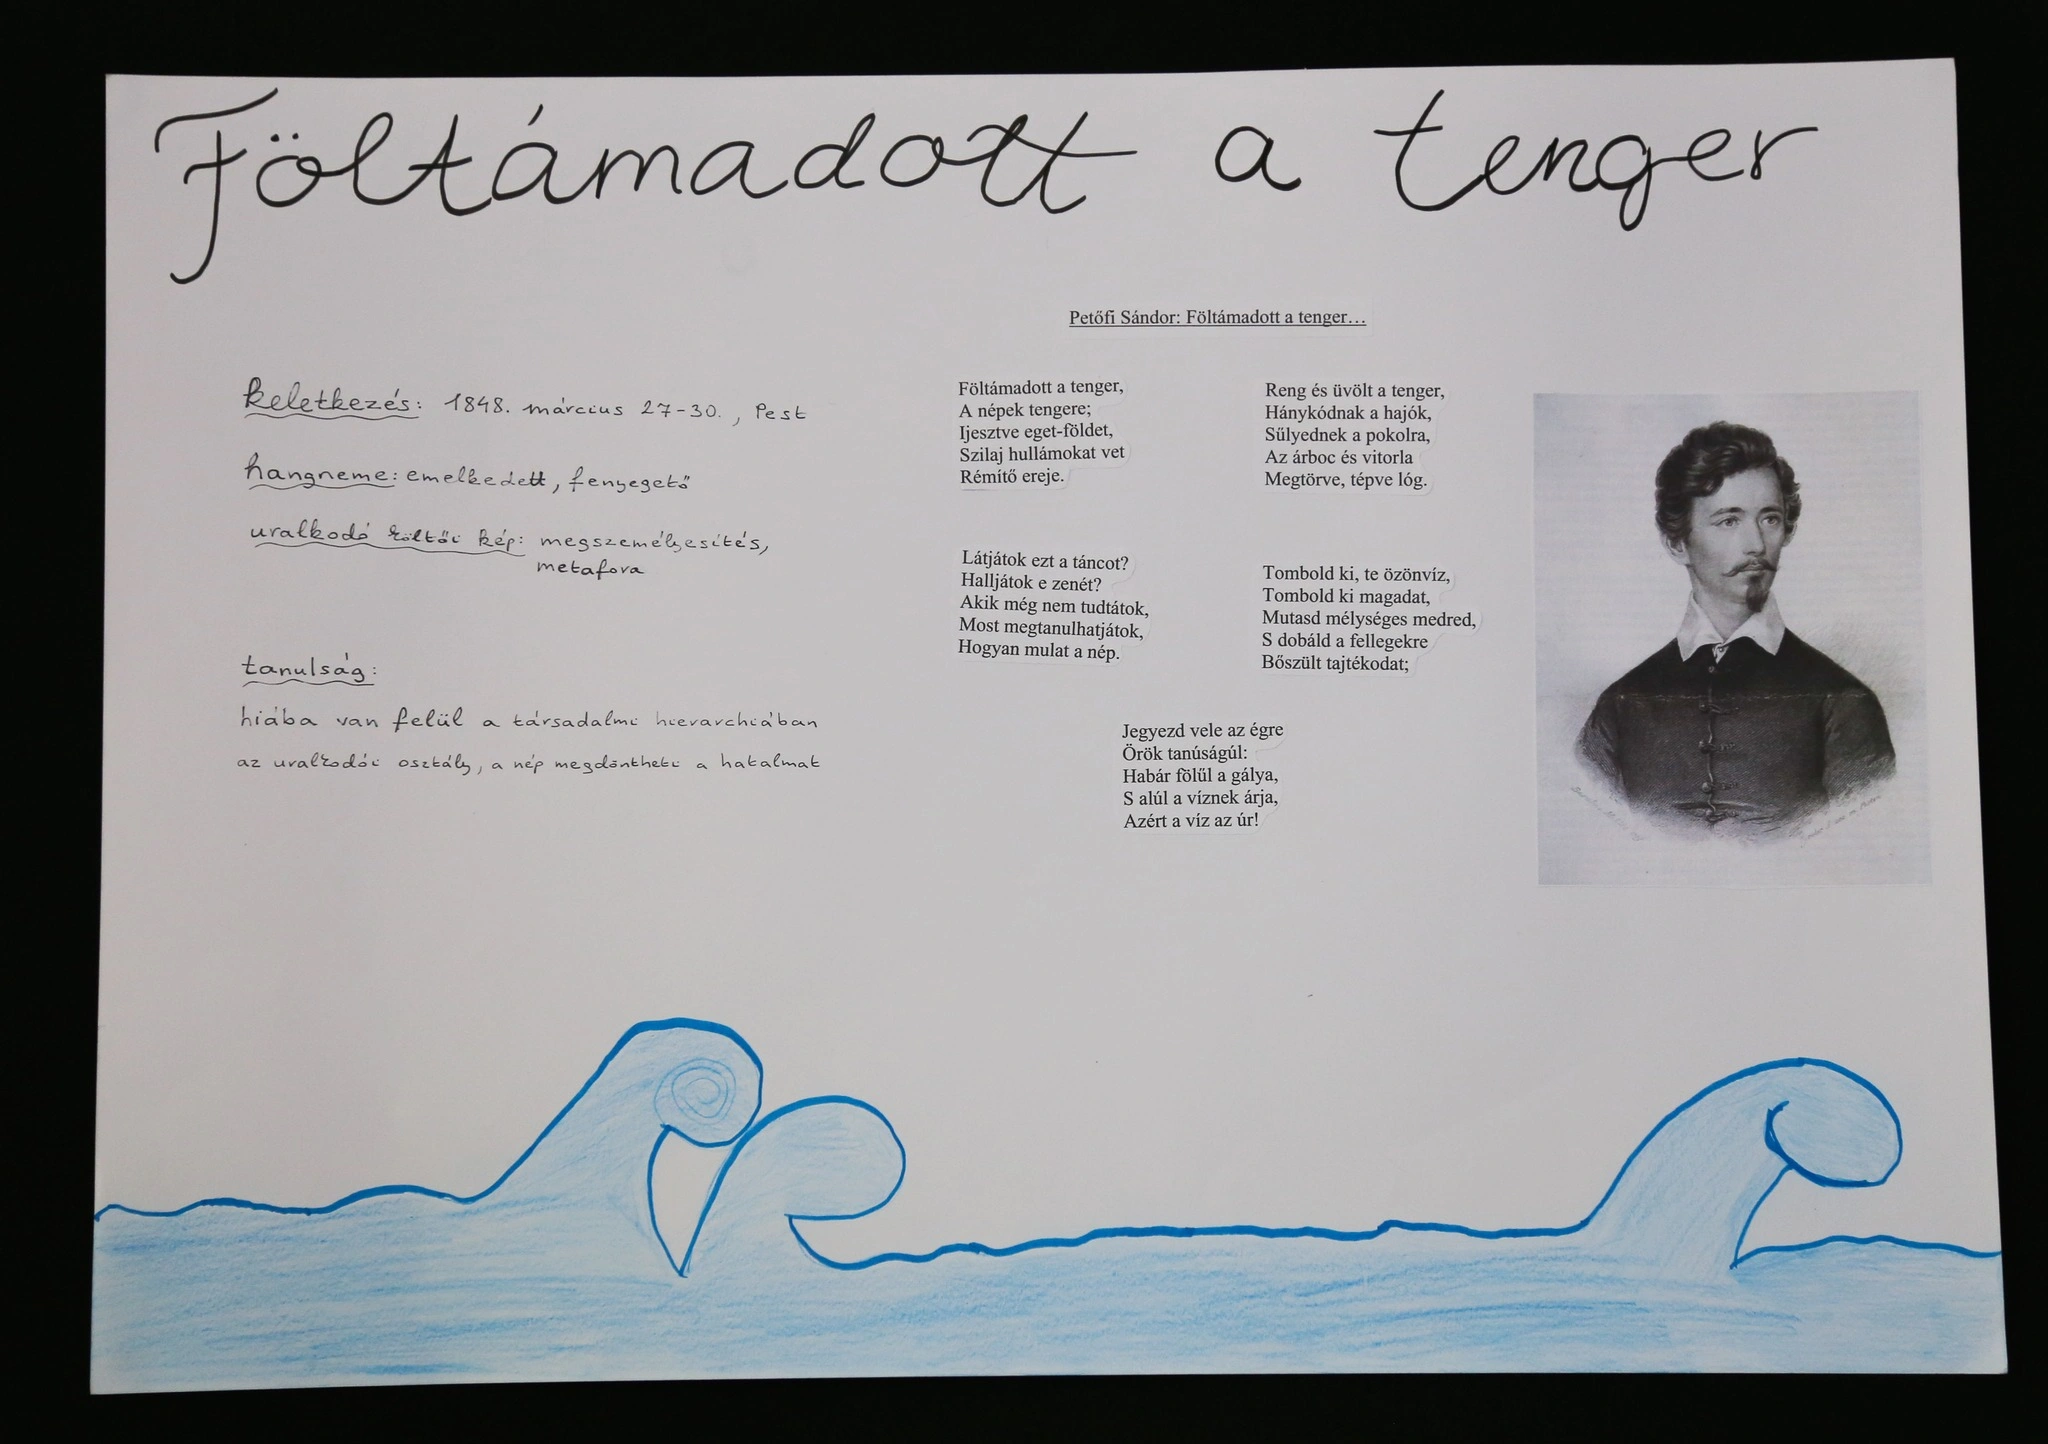 Föltámadott a tenger
keletkezés: 1848. március 27-30., Pest
hangneme: emelkedett, fenyegető
uralkodó költői kép: megszemélyesítés,
metafora
tanulság:
hiába van felül a társadalmi hierarchiában
az uralkodói osztály, a nép megdöntheti a hatalmat
Petőfi Sándor: Föltámadott a tenger…
Föltámadott a tenger,
A népek tengere;
Ijesztve eget-földet,
Szilaj hullámokat vet
Rémítő ereje.
Látjátok ezt a táncot?
Halljátok e zenét?
Akik még nem tudtátok,
Most megtanulhatjátok,
Hogyan mulat a nép.
Reng és üvölt a tenger,
Hánykódnak a hajók,
Sűlyednek a pokolra,
Az árboc és vitorla
Megtörve, tépve lóg.
Tombold ki, te özönvíz,
Tombold ki magadat,
Mutasd mélységes medred,
S dobáld a fellegekre
Bőszült tajtékodat;
Jegyezd vele az égre
Örök tanúságúl:
Habár fölűl a gálya,
S alúl a víznek árja,
Azért a víz az úr!